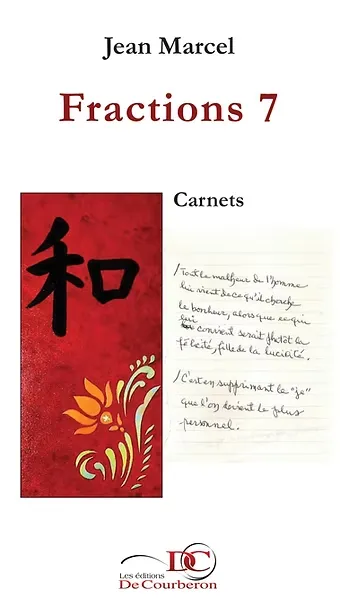 Jean Marcel
Fractions 7
Carnets
和
/Tout le malheur de l'homme
lui vient de ce qu'il cherche
le bonheur, alors que ce qui
lui convient serait plutôt la
félicité, fille de la lucidité.
/C'est en supprimant le "je"
que l'on devient le plus
personnel.
DC
Les éditions
De Courberon